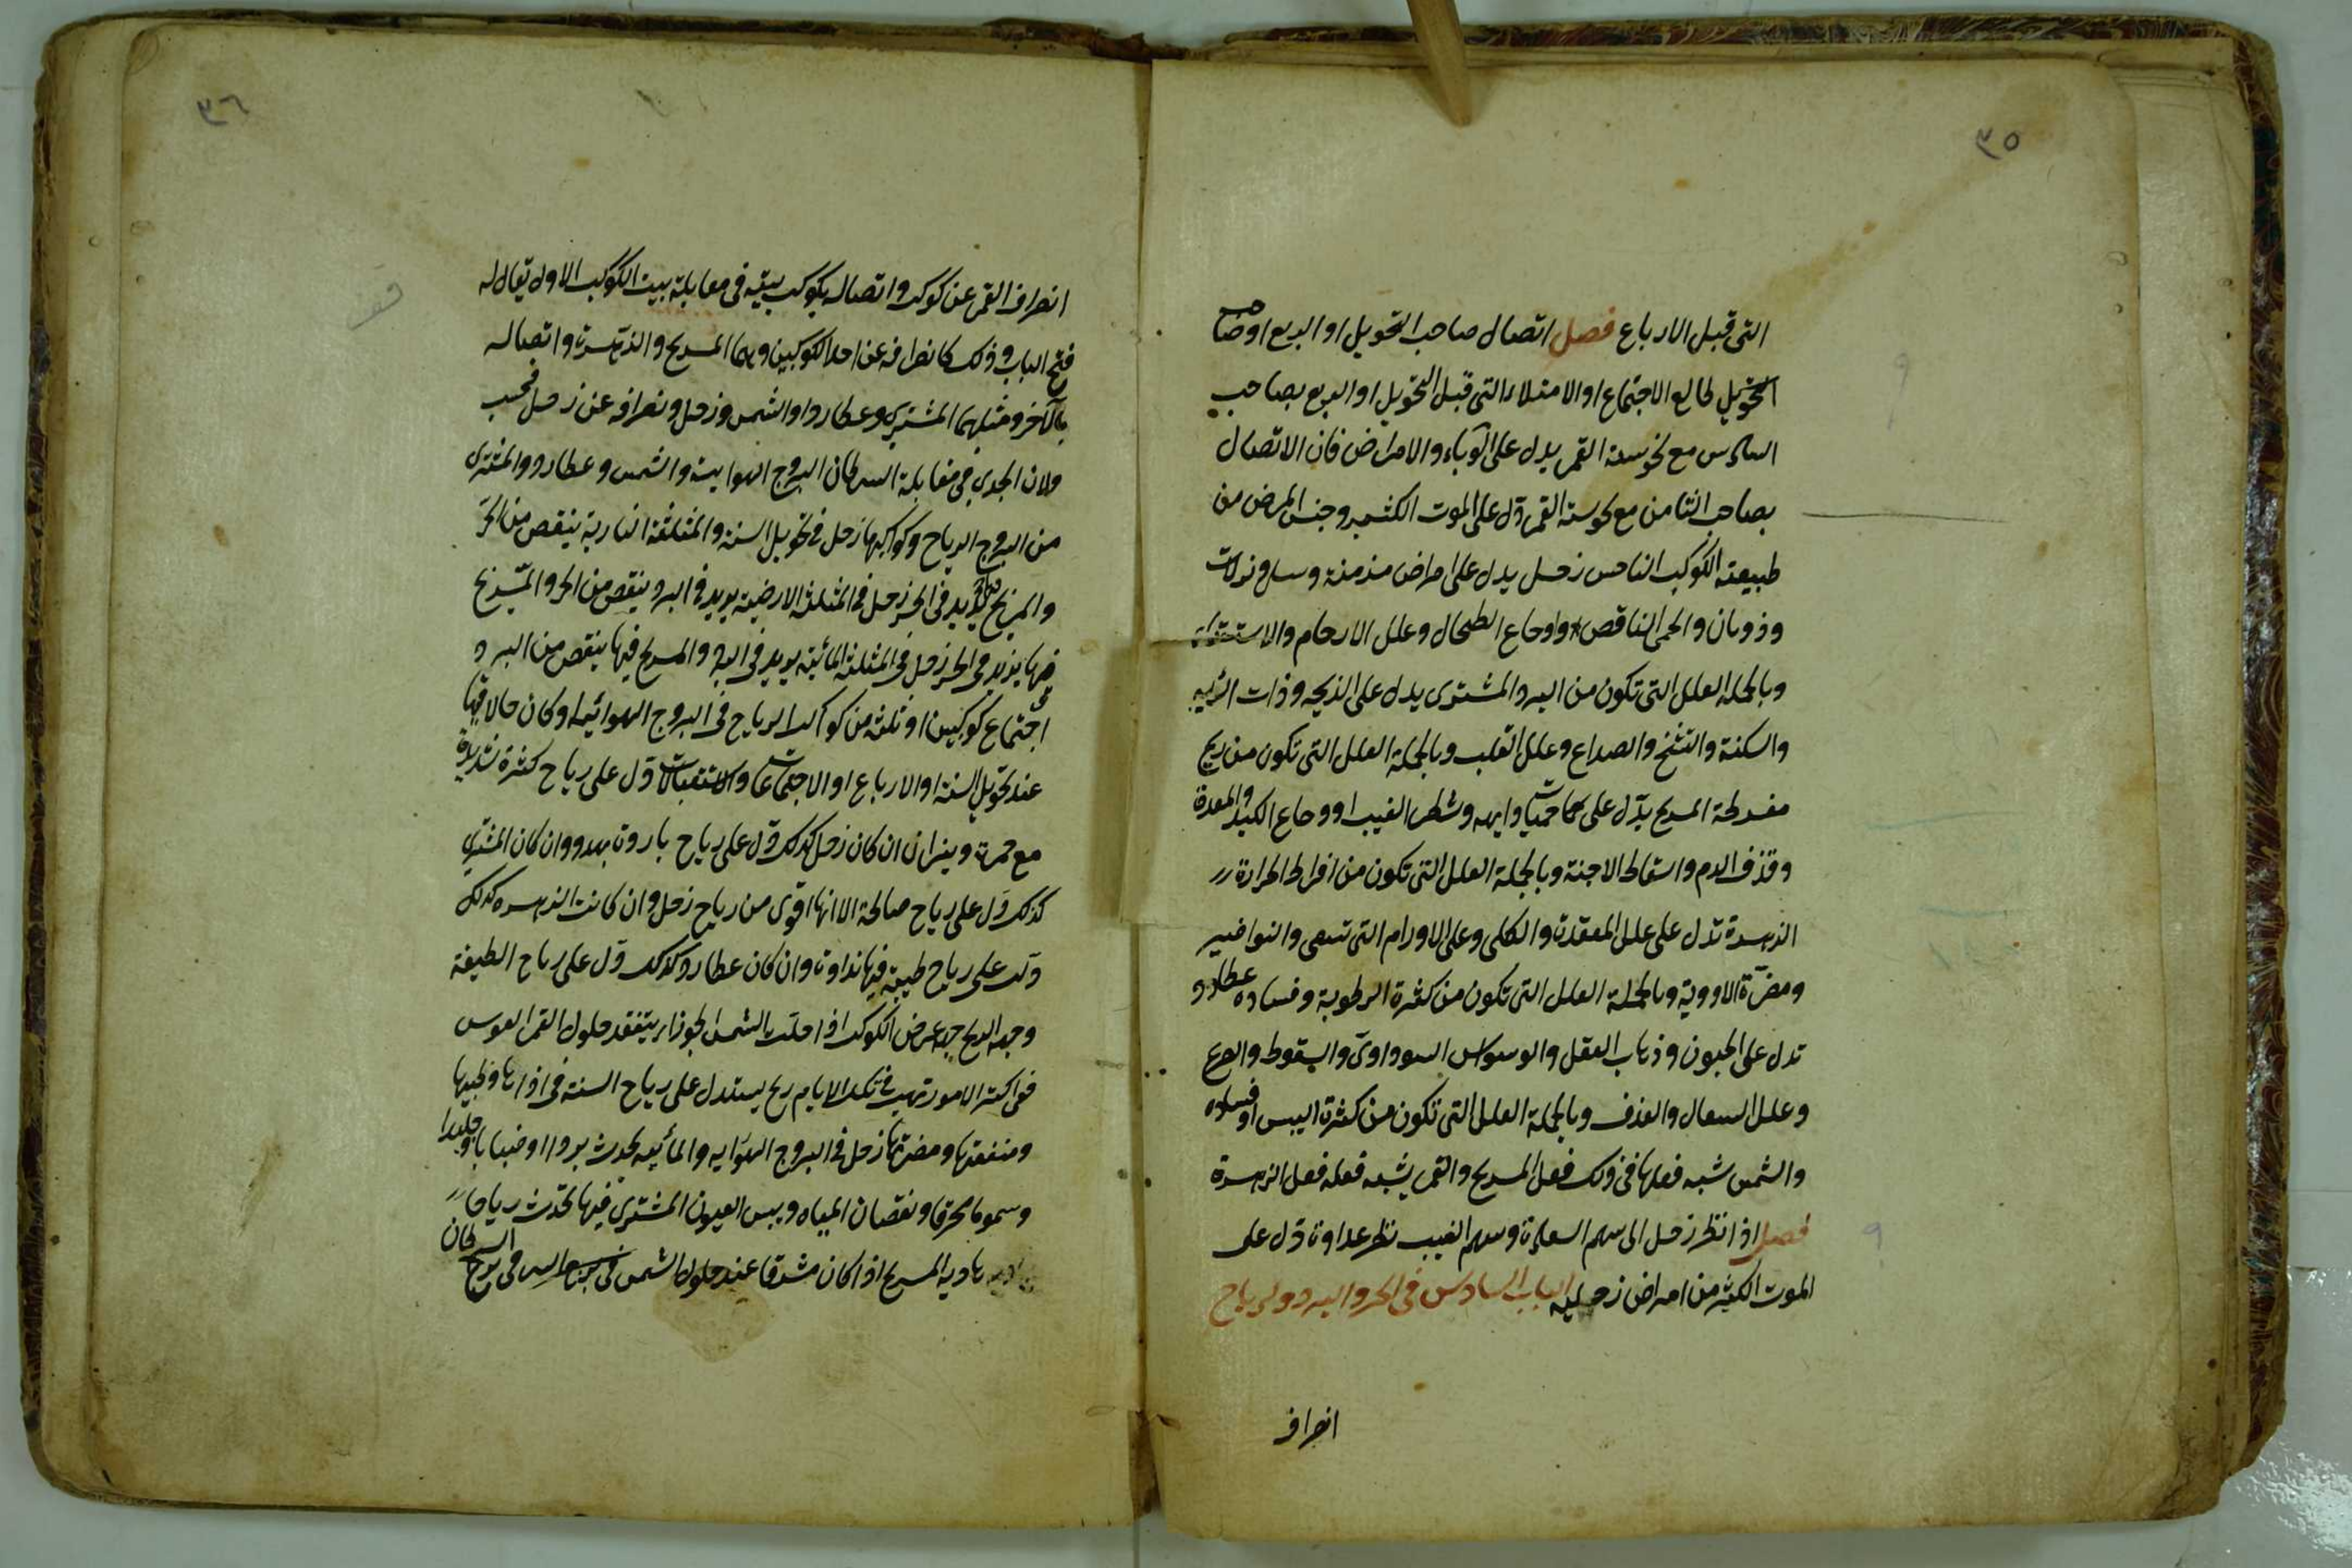 ٣٥
التى قبل الارباع فصل اتصال صاحب التحويل او الربع او صاحب
التحويل طالع الاجتماع او الامتلاء التى قبل التحويل او الربع بصاحب
السادس مع نحوسة القمر يدل على الوباء والامراض فان الاتصال
بصاحب الثامن مع نحوسة القمر دل على الموت الكثير وجنس المرض من
طبيعة الكوكب الناحس زحل يدل على امراض مزمنة وسل ونزلات
وذوبان والحمى الناقص واوجاع الطحال وعلل الارحام والاستسقاء
وبالجملة العلل التى تكون من البرد المشترى يدل على الذبحه وذات الريه
والسكتة والتشنج والصداع وعلل القلب وبالجملة العلل التى تكون من ريح
مفرطة المريخ يدل على حميات دايمه وشطر الغيب او وجاع الكبد والمعدة
وقذف الدم واسقاط الاجنة وبالجملة العلل التى تكون من افراط الحرارة
الزهرة تدل على علل المقعدة والكلى وعلى الاورام التى تسعى والنواصير
ومضرة الادوية وبالجملة العلل التى تكون من كثرة الرطوبة وفساده عطارد
تدل على الجنون وذهاب العقل والوسواس السوداوى والسقوط والصرع
وعلل السعال والقذف وبالجملة العلل التى تكون من كثرة اليبس او فساده
والشمس شبه فعلها فى ذلك فعل المريخ والقمر يشبه فعله فعل الزهرة
فصل اذا نظر زحل الى سهم السعادة وسهم الغيب نظر عداوة دل على
الموت الكثير من امراض زحلية الباب السادس فى الحر والبرد والرياح
انصراف
٣٦
انصراف القمر عن كوكب واتصاله بكوكب بيته فى مقابلة بيت الكوكب الاول يقال له
فتح الباب وذلك كانصرافه عن احد الكوكبين وهما المريخ والزهرة واتصاله
بالآخر ومثلهما المشترى وعطارد او الشمس وزحل ونصرافه عن زحل فحسب
ولان الجدى فى مقابلة السرطان البروج الهوايية والشمس وعطارد والمشترى
من البروج الرياح وكواكبها زحل فى تحويل السنة والمثلثة النارية ينقص من الحر
والمريخ يزيد فى الحر زحل فى المثلثة الارضية يزيد فى البرد ينقص من الحر والمريخ
فيها يزيد فى الحر زحل فى المثلثة المائية يزيد فى البرد والمريخ فيها ينقص من البرد
اجتماع كوكبين او ثلثة من كواكب الرياح فى البروج الهوائية او كان حالاتها
عند تحويل السنة او الارباع او الاجتماعات والاستقبالات دل على رياح كثيرة شديدة
مع حمرة ونيران ان كان زحل كذلك دل على رياح باردة وان كان المشترى
كذلك دل على رياح صالحة الا انها اقوى من رياح زحل وان كانت الزهره كذلك
دلت على رياح طيبة فيها نداوة وان كان عطارد كذلك دل على رياح لطيفة
وجهة الريح جهة عرض الكوكب اذا حلت الشمس الجوزاء يتفقد حلول القمر القوس
ففى اكثر الامور تهب فى تلك الايام ريح يستدل على رياح السنة فى اذاها وطيبها
ومنفعتها ومضرتها زحل فى البروج الهوايه والمائيه يحدث بردا او ضبابا وجليدا
وسموما محرقا ونقصان المياه ويبس العيون المشترى فيها تحدث رياحا
هاديه المريخ اذا كان مشرقا عند حلول الشمس فى برج السرطان